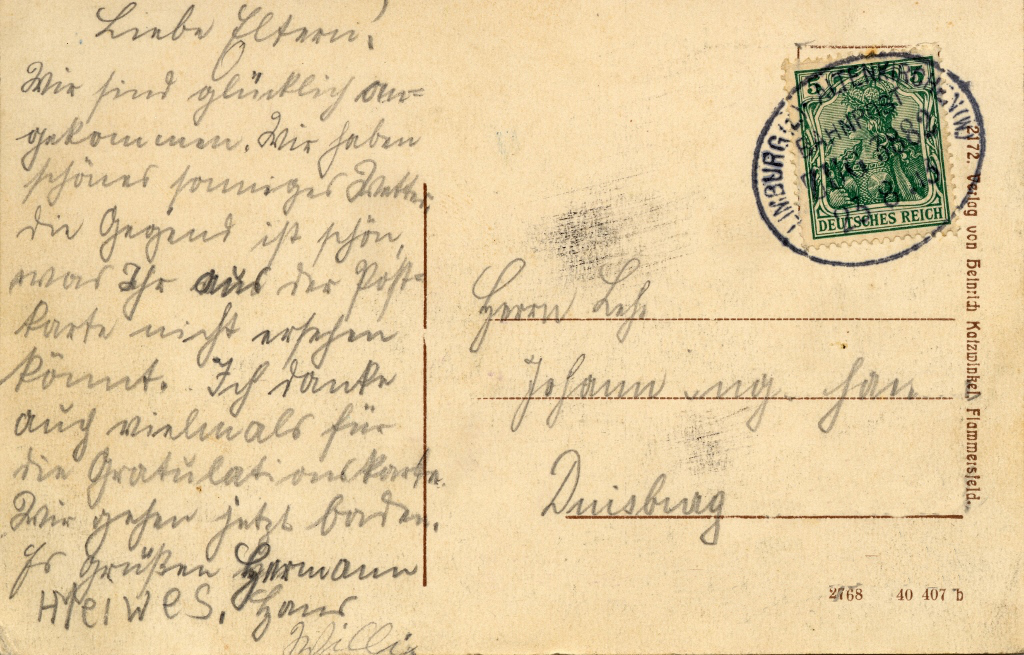 Liebe Eltern!
Wir sind glücklich an=
gekommen. Wir haben
schönes sonniges Wetter,
die Gegend ist schön,
was Ihr aus der Post=
karte nicht ersehen
könnt. Ich danke
auch vielmals für
die Gratulationskarte.
Wir gehen jetzt baden.
Es Grüßen Hermann
Hans
Willi
5 5
DEUTSCHES REICH
LIMBURG ALTENKIRCHEN(W)
BAHNPOST
ZUG
Herrn
Johann
Duisburg
2172. Verlag von Heinrich Katzwinkel, Flammersfeld.
2768 40 407 b